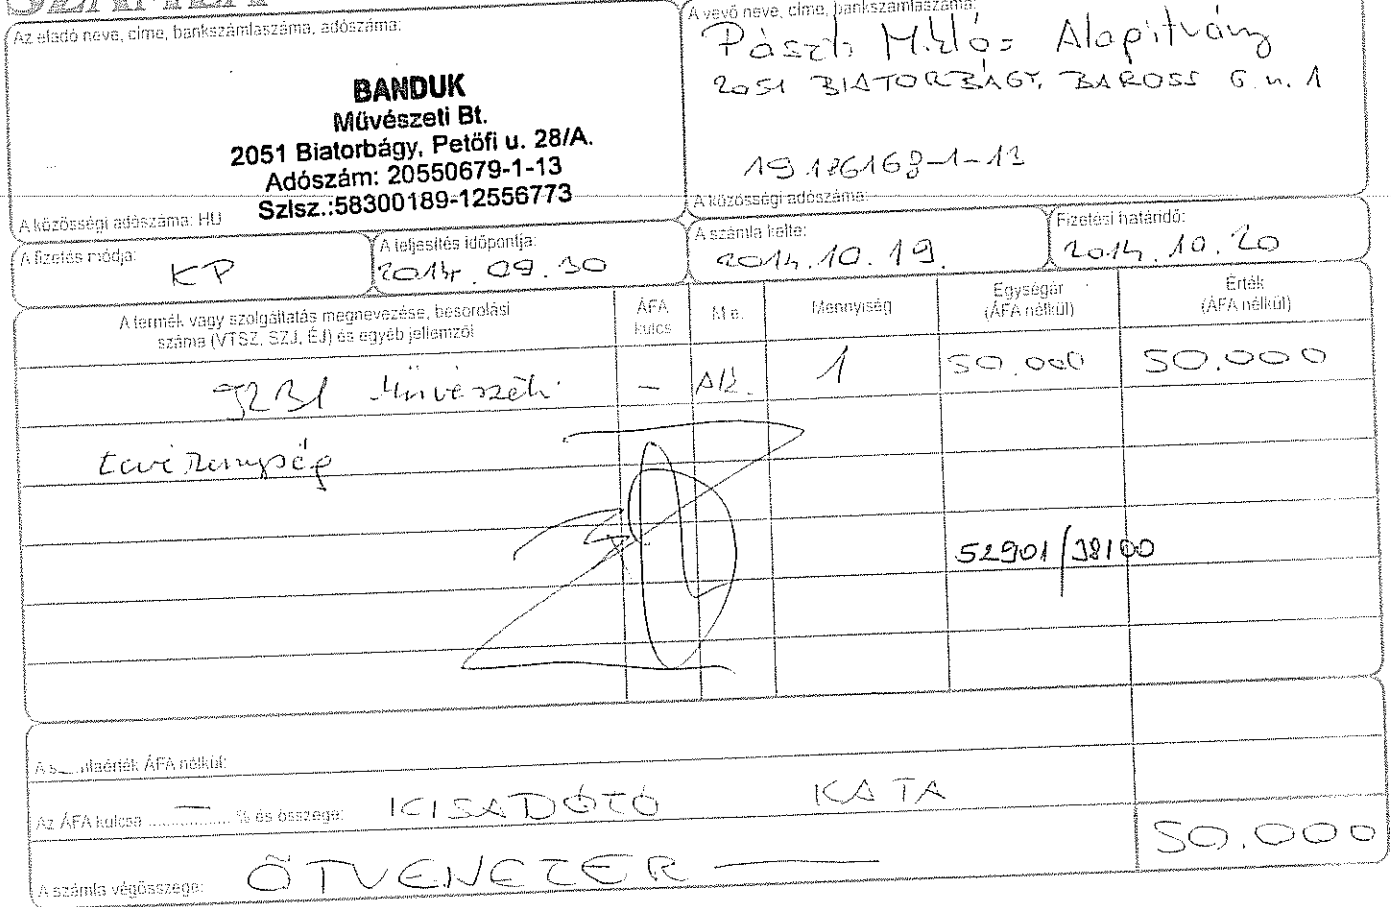 SZÁMLA
Az eladó neve, címe, bankszámlaszáma, adószáma:
BANDUK
Művészeti Bt.
2051 Biatorbágy, Petőfi u. 28/A.
Adószám: 20550679-1-13
Szlsz.:58300189-12556773
A közösségi adószáma: HU
A vevő neve, címe, bankszámlaszáma:
Pászti Miklós Alapítvány
2051 BIATORBÁGY, BAROSS G. u. 1
A közösségi adószáma:
A fizetés módja:
KP
A teljesítés időpontja:
2014. 09. 30
A számla kelte:
2014. 10. 19.
Fizetési határidő:
2014. 10. 20
A termék vagy szolgáltatás megnevezése, besorolási
száma (VTSZ, SZJ, ÉJ) és egyéb jellemzői
ÁFA
kulcs
M.e.
Mennyiség
Egységár
(ÁFA nélkül)
Érték
(ÁFA nélkül)
9231 Művészeti - Alk. 1 50.000 50.000
tevékenység
52901/38100
ÁFA nélkül:
Az ÁFA kulcsa — % és összege: KISADÓZÓ KATA
A számla végösszege: ÖTVENEZER — 50.000